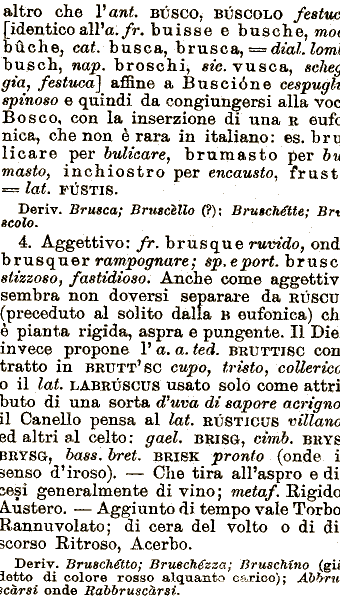 altro che l'ant. BÚSCO, BÚSCOLO festuc
[identico all'a. fr. buisse e busche, mo
bûche, cat. busca, brusca, = dial. lom
busch, nap. broschi, sic. vusca, scheg
gia, festuca] affine a Buscióne cespugli
spinoso e quindi da congiungersi alla voc
Bosco, con la inserzione di una R eufo
nica, che non è rara in italiano: es. bru
licare per bulicare, brumasto per bu
masto, inchiostro per encausto, frust
= lat. FÚSTIS.
Deriv. Brusca; Bruscèllo (?); Bruschétte; Bru
scolo.
4. Aggettivo: fr. brusque ruvido, ond
brusquer rampognare; sp. e port. brusc
stizzoso, fastidioso. Anche come aggettiv
sembra non doversi separare da RÚSCU
(preceduto al solito dalla B eufonica) ch
è pianta rigida, aspra e pungente. Il Die
invece propone l'a. a. ted. BRUTTISC con
tratto in BRUTT'SC cupo, tristo, collerico
o il lat. LABRÚSCUS usato solo come attri
buto di una sorta d'uva di sapore acrigno
il Canello pensa al lat. RÚSTICUS villano
ed altri al celto: gael. BRISG, cimb. BRYS
BRYSG, bass. bret. BRISK pronto (onde i
senso d'iroso). — Che tira all'aspro e di
cesi generalmente di vino; metaf. Rigido
Austero. — Aggiunto di tempo vale Torbo
Rannuvolato; di cera del volto o di di
scorso Ritroso, Acerbo.
Deriv. Bruschétto; Bruschézza; Bruschino (gi
detto di colore rosso alquanto carico); Abbru
scàrsi onde Rabbruscàrsi.